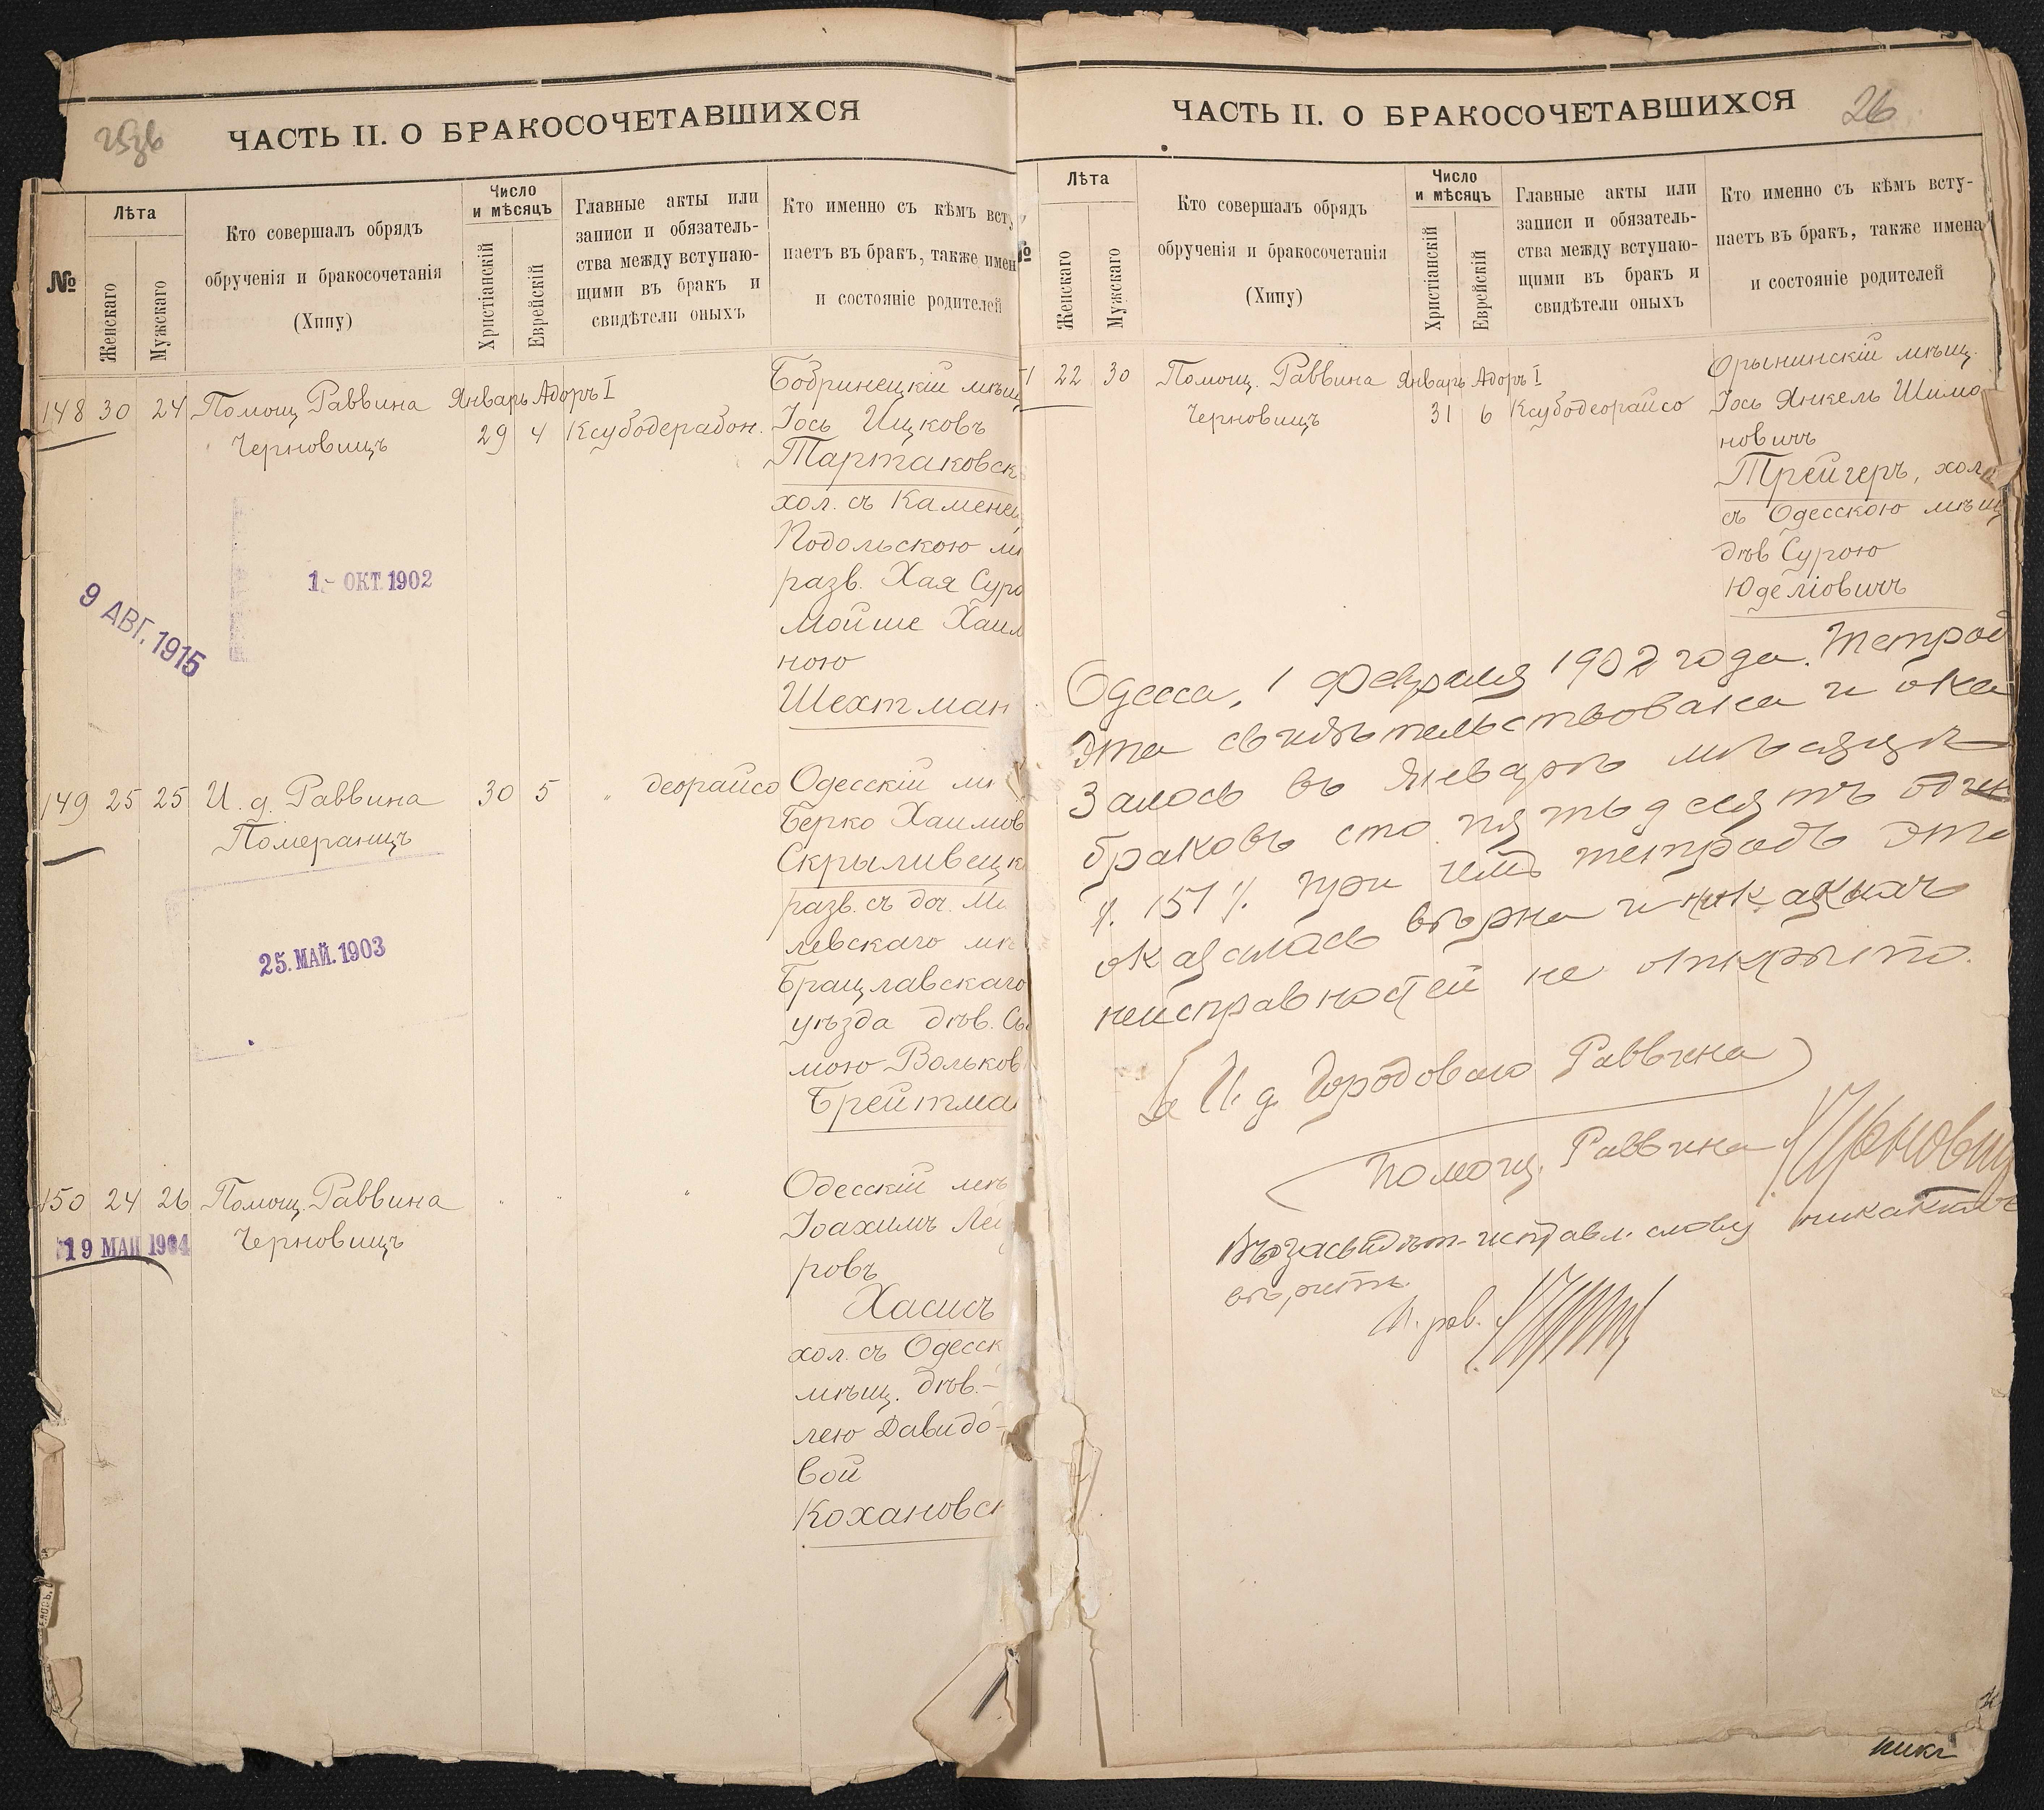 ЧАСТЬ II. О БРАКОСОЧЕТАВШИХСЯ
№
Лѣта
Женскаго
Мужскаго
Кто совершалъ обрядъ
обрученія и бракосочетанія
(Хипу)
Число
и мѣсяцъ
Христіанскій
Еврейскій
Главные акты или
записи и обязатель-
ства между вступаю-
щими въ бракъ и
свидѣтели оныхъ
Кто именно съ кѣмъ всту
паетъ въ бракъ, также имен
и состояніе родителей
148 30 24 Помощ. Раввина Январь Адоръ I
Черновицъ 29 4 Ксубодерабон.
Бобринецкій мѣщ
Іось Ицковъ
Тартаковск
хол. съ Каменец
Подольскою м
разв. Хая Суро
Мойше Хаим
ною
Шехтман
1 - ОКТ. 1902
9 АВГ. 1915
149 25 25 И. д. Раввина 30 5 " деорайсо
Померанцъ
Одесскій м
Берко Хаимов
Скрыливецк
разв. съ доч. М
левскаго мѣ
Брацлавскаго
уѣзда дѣв. С
мою Вольков
Брейтма
25. МАЙ. 1903
150 24 26 Помощ. Раввина " " "
Черновицъ
19 МАЙ 1904
Одесскій мѣ
Іоахимъ Ле
ровъ
Хасисъ
хол. съ Одесск
мѣщ. дѣв. -
лею Давидо-
вой
Кохановск
ЧАСТЬ II. О БРАКОСОЧЕТАВШИХСЯ
26
№
Лѣта
Женскаго
Мужскаго
Кто совершалъ обрядъ
обрученія и бракосочетанія
(Хипу)
Число
и мѣсяцъ
Христіанскій
Еврейскій
Главные акты или
записи и обязатель-
ства между вступаю-
щими въ бракъ и
свидѣтели оныхъ
Кто именно съ кѣмъ всту-
паетъ въ бракъ, также имена
и состояніе родителей
1 22 30 Помощ. Раввина Январь Адоръ I
Черновицъ 31 6 Ксубодеорайсо
Орынинскій мѣщ.
Іось Янкель Шимо
новичъ
Трейгеръ, хол
съ Одесскою мѣщ
дѣв Сурою
Юделіовичъ
Одесса, 1 Февраля 1902 года. Тетрад
эта свидѣтельствована и ока
залось въ Январѣ мѣсяцѣ
браковъ сто пятьдесятъ один
/. 151 /. при чемъ тетрадь эта
оказалась вѣрна и никакихъ
неисправностей не открыто.
За И. д. Городоваго Раввина
Помощ. Раввина
исправл. слову никакихъ
вѣрить.
П. рав.